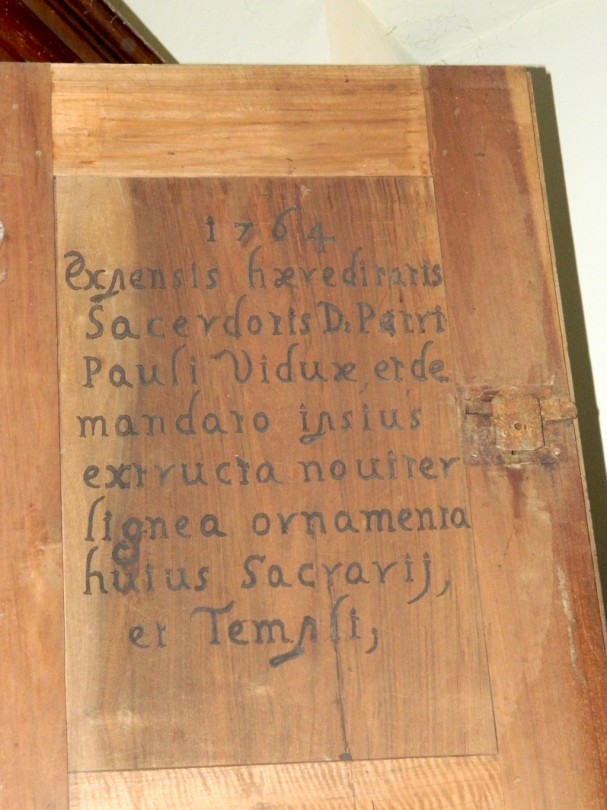 1764
Expensis hæreditatis
Sacerdotis D: Petri
Pauli Viduæ, et de
mandato ipsius
extructa noviter
lignea ornamenta
huius Sacrarij,
et Templi,